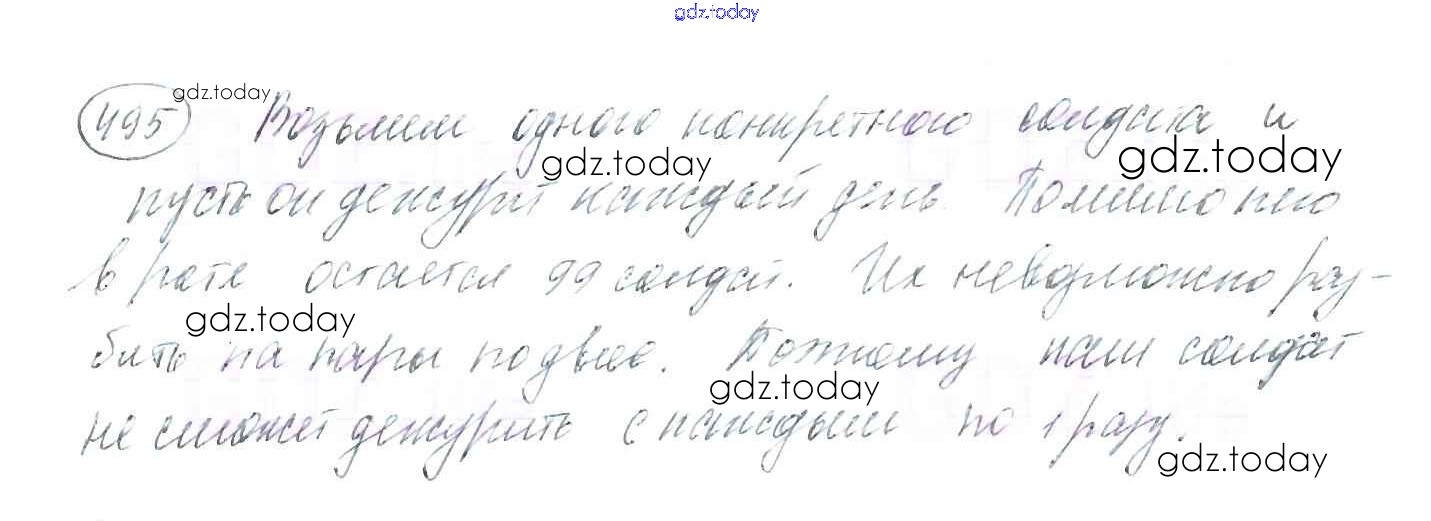 gdz.today
495 gdz.today Возьмем одного конкретного солдата и
gdz.today gdz.today
пусть он дежурит каждый день. Помимо него
в роте остается 99 солдат. Их невозможно раз-
gdz.today
бить на пары по двое. Поэтому наш солдат
gdz.today
не сможет дежурить с каждым по 1 разу.
gdz.today